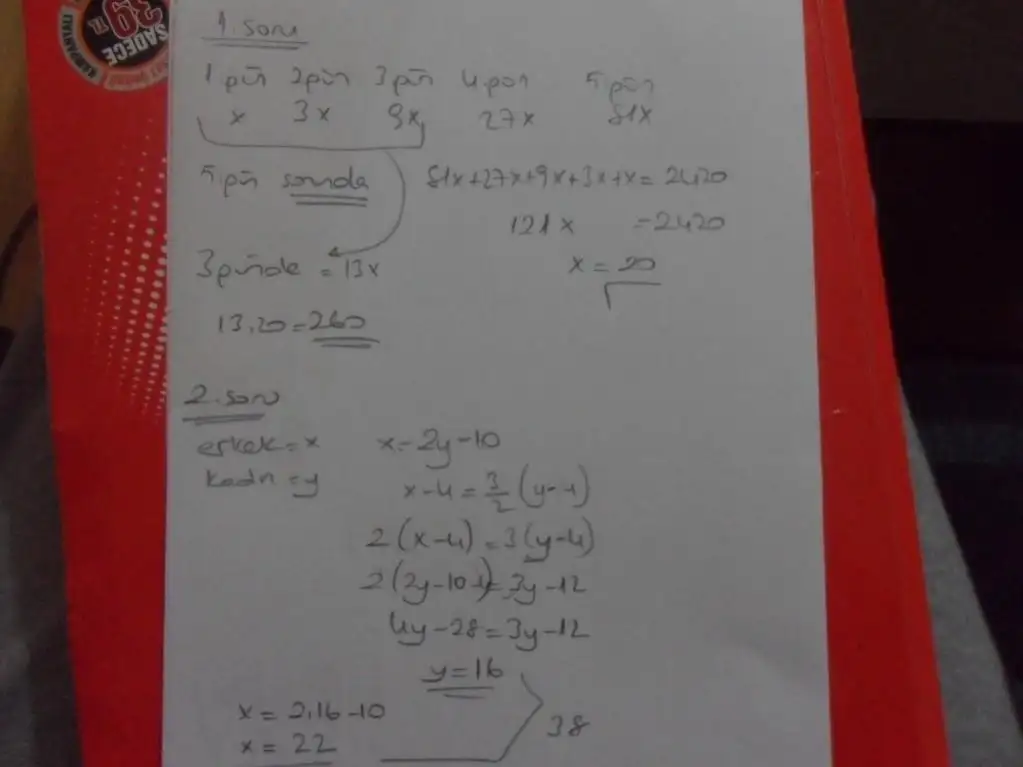 39 TL
SADECE
1. soru
1 gün 2 gün 3 gün 4 gün 5 gün
x 3x 9x 27x 81x
5. gün sonunda
81x+27x+9x+3x+x=2420
121x =2420
3 günde = 13x
x = 20
13.20=260
2. soru
erkek = x x=2y-10
kadın = y x-4=3/2(y-4)
2(x-4)=3(y-4)
2(2y-10-4)=3y-12
4y-28=3y-12
y=16
x = 2.16-10
x = 22
38